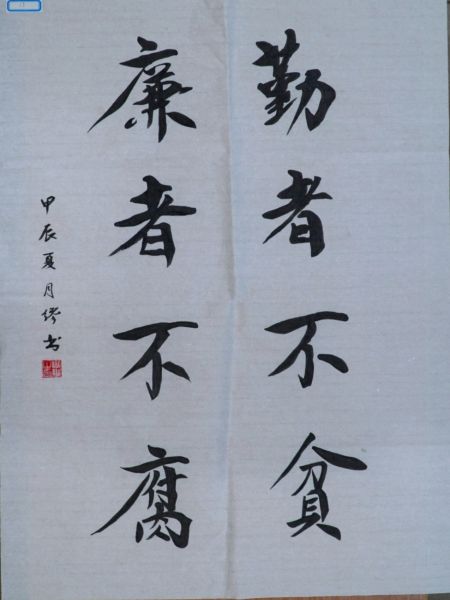 勤者不貧
廉者不腐
甲辰夏月